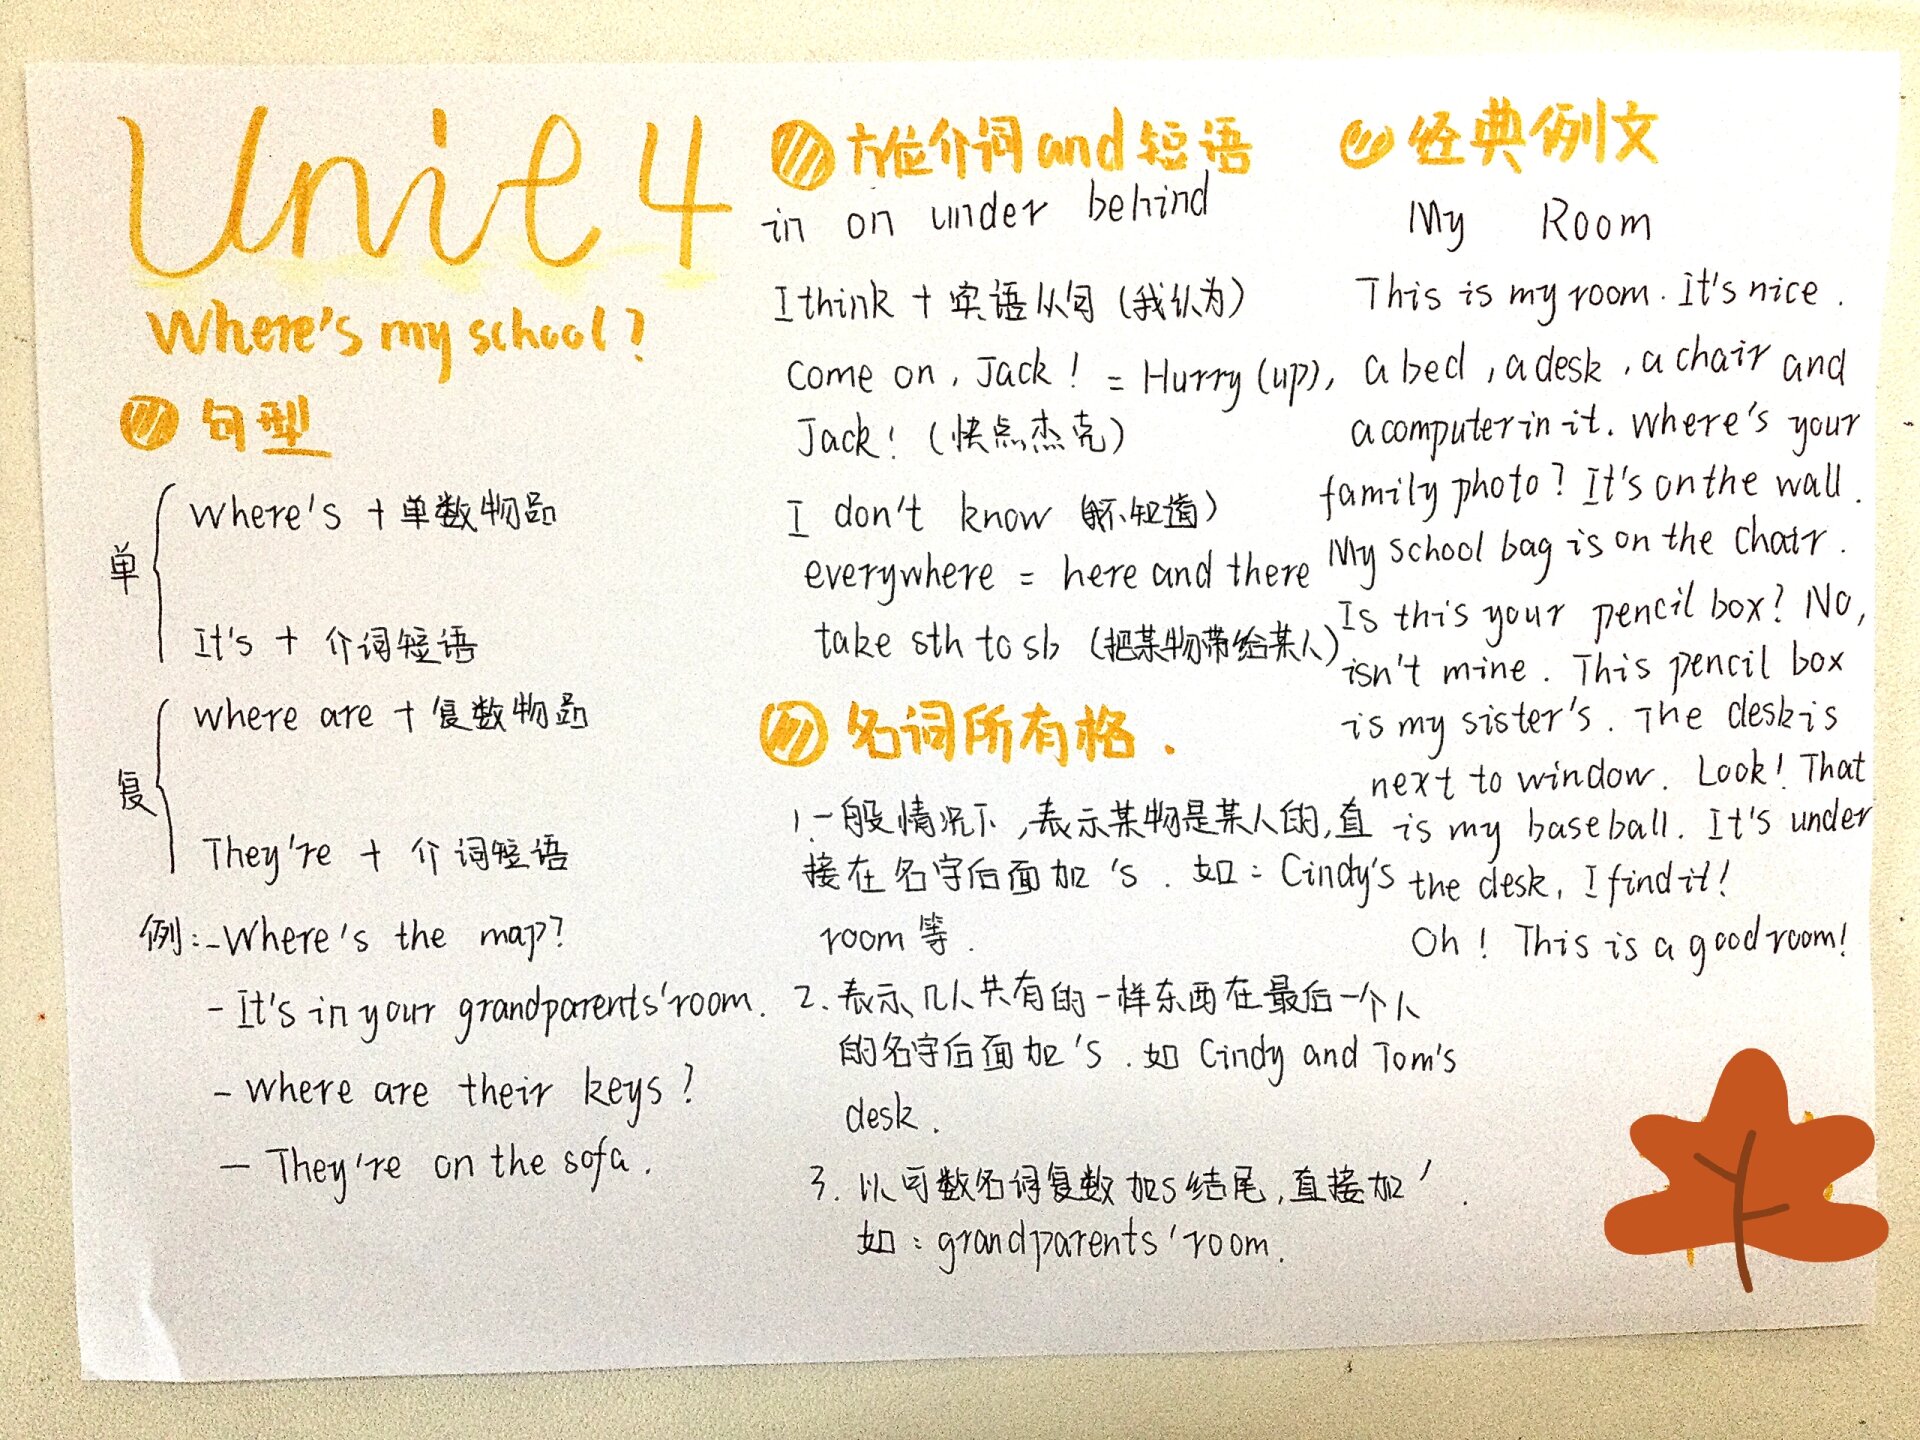 Unit 4
Where's my school?
句型
单
Where's + 单数物品
It's + 介词短语
复
Where are + 复数物品
They're + 介词短语
例: - Where's the map?
- It's in your grandparents' room.
- Where are their keys?
- They're on the sofa.
方位介词 and 短语
in on under behind
I think + 宾语从句 (我认为)
Come on, Jack! = Hurry (up),
Jack! (快点杰克)
I don't know (我不知道)
everywhere = here and there
take sth to sb (把某物带给某人)
名词所有格.
1. 一般情况下,表示某物是某人的,直
接在名字后面加 's. 如: Cindy's
room 等.
2. 表示几人共有的一样东西在最后一个人
的名字后面加 's. 如 Cindy and Tom's
desk.
3. 以可数名词复数加s结尾,直接加 '.
如: grandparents' room.
经典例文
My Room
This is my room. It's nice.
a bed, a desk, a chair and
a computer in it. Where's your
family photo? It's on the wall.
My school bag is on the chair.
Is this your pencil box? No,
isn't mine. This pencil box
is my sister's. The desk is
next to window. Look! That
is my baseball. It's under
the desk, I find it!
Oh! This is a good room!